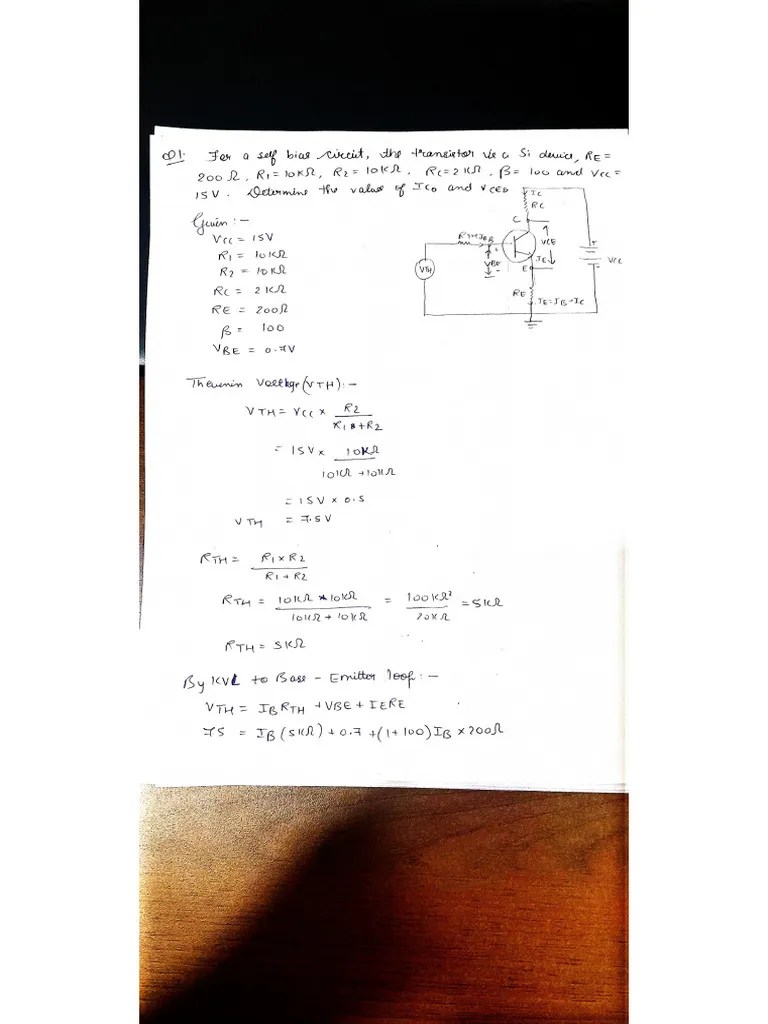 Q1. For a self bias circuit, the transistor is a Si device, RE =
200 Ω, R1 = 10KΩ, R2 = 10KΩ, RC = 2KΩ, β = 100 and VCC =
15V. Determine the value of ICQ and VCEQ
Given :-
VCC = 15V
R1 = 10KΩ
R2 = 10KΩ
RC = 2KΩ
RE = 200Ω
β = 100
VBE = 0.7V
IC
RC
C
RTH IB
VCE
VBE
IE
E
VTH
VCC
RE
IE=IB+IC
Thevenin Voltage (VTH) :-
VTH = VCC × R2
R1 + R2
= 15V × 10KΩ
10KΩ + 10KΩ
= 15V × 0.5
VTH = 7.5V
RTH = R1 × R2
R1 + R2
RTH = 10KΩ × 10KΩ = 100KΩ² = 5KΩ
10KΩ + 10KΩ 20KΩ
RTH = 5KΩ
By KVL to Base - Emitter loop :-
VTH = IB RTH + VBE + IE RE
75 = IB (5KΩ) + 0.7 + (1+100) IB × 200Ω